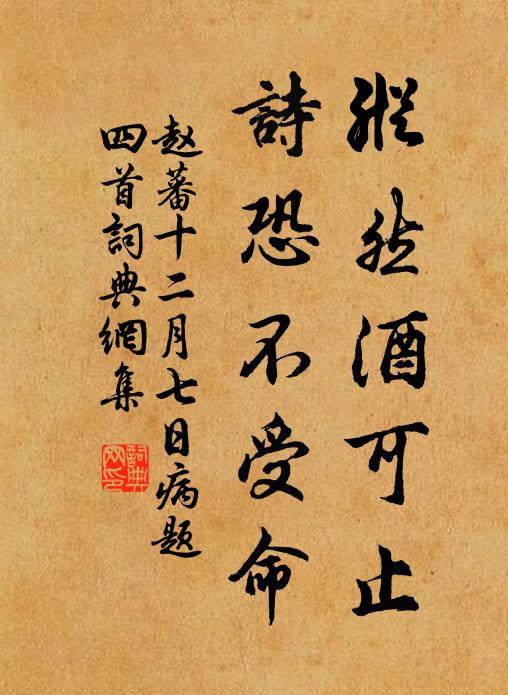 縱然酒可止
詩恐不受命
赵蕃十二月七日病题
四首詞典網集
詞典网印